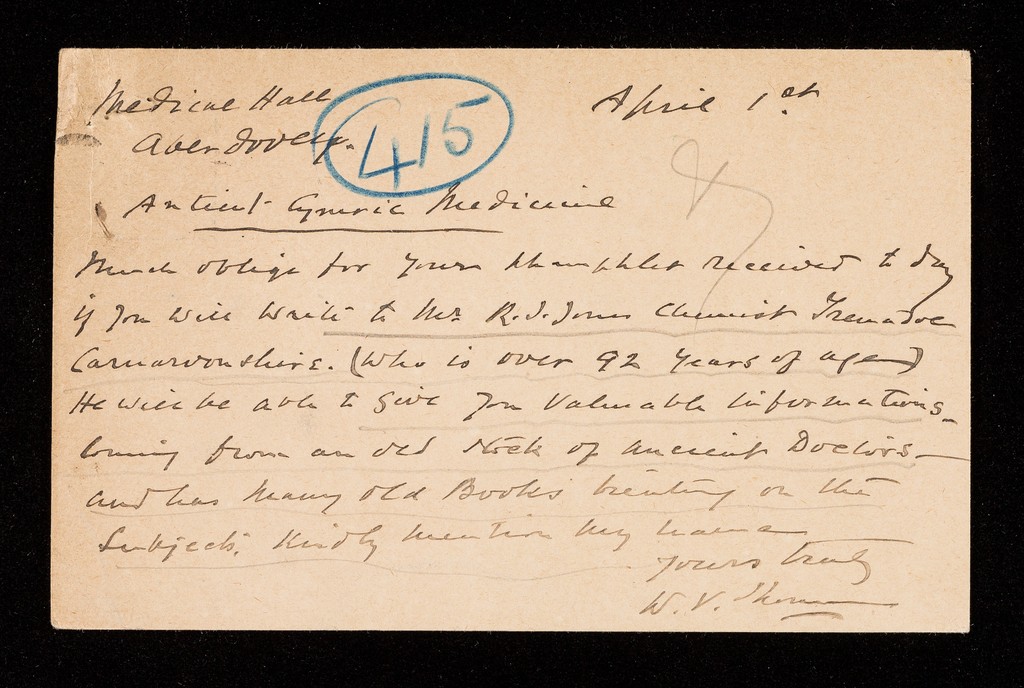 Medical Hall
Aberdovey.
415
April 1st
Antient Cymric Medicine
Much oblige for your Phamphlet received to day
if you will write to Mr R. I. Jones Chemist Tremadoc
Carnarvonshire. (Who is over 92 years of age)
He will be able to give you valuable informations
coming from an old stock of ancient Doctors—
and has many old Books treating on the
Subject. Kindly mention my name
yours truly
W. V. Thomas